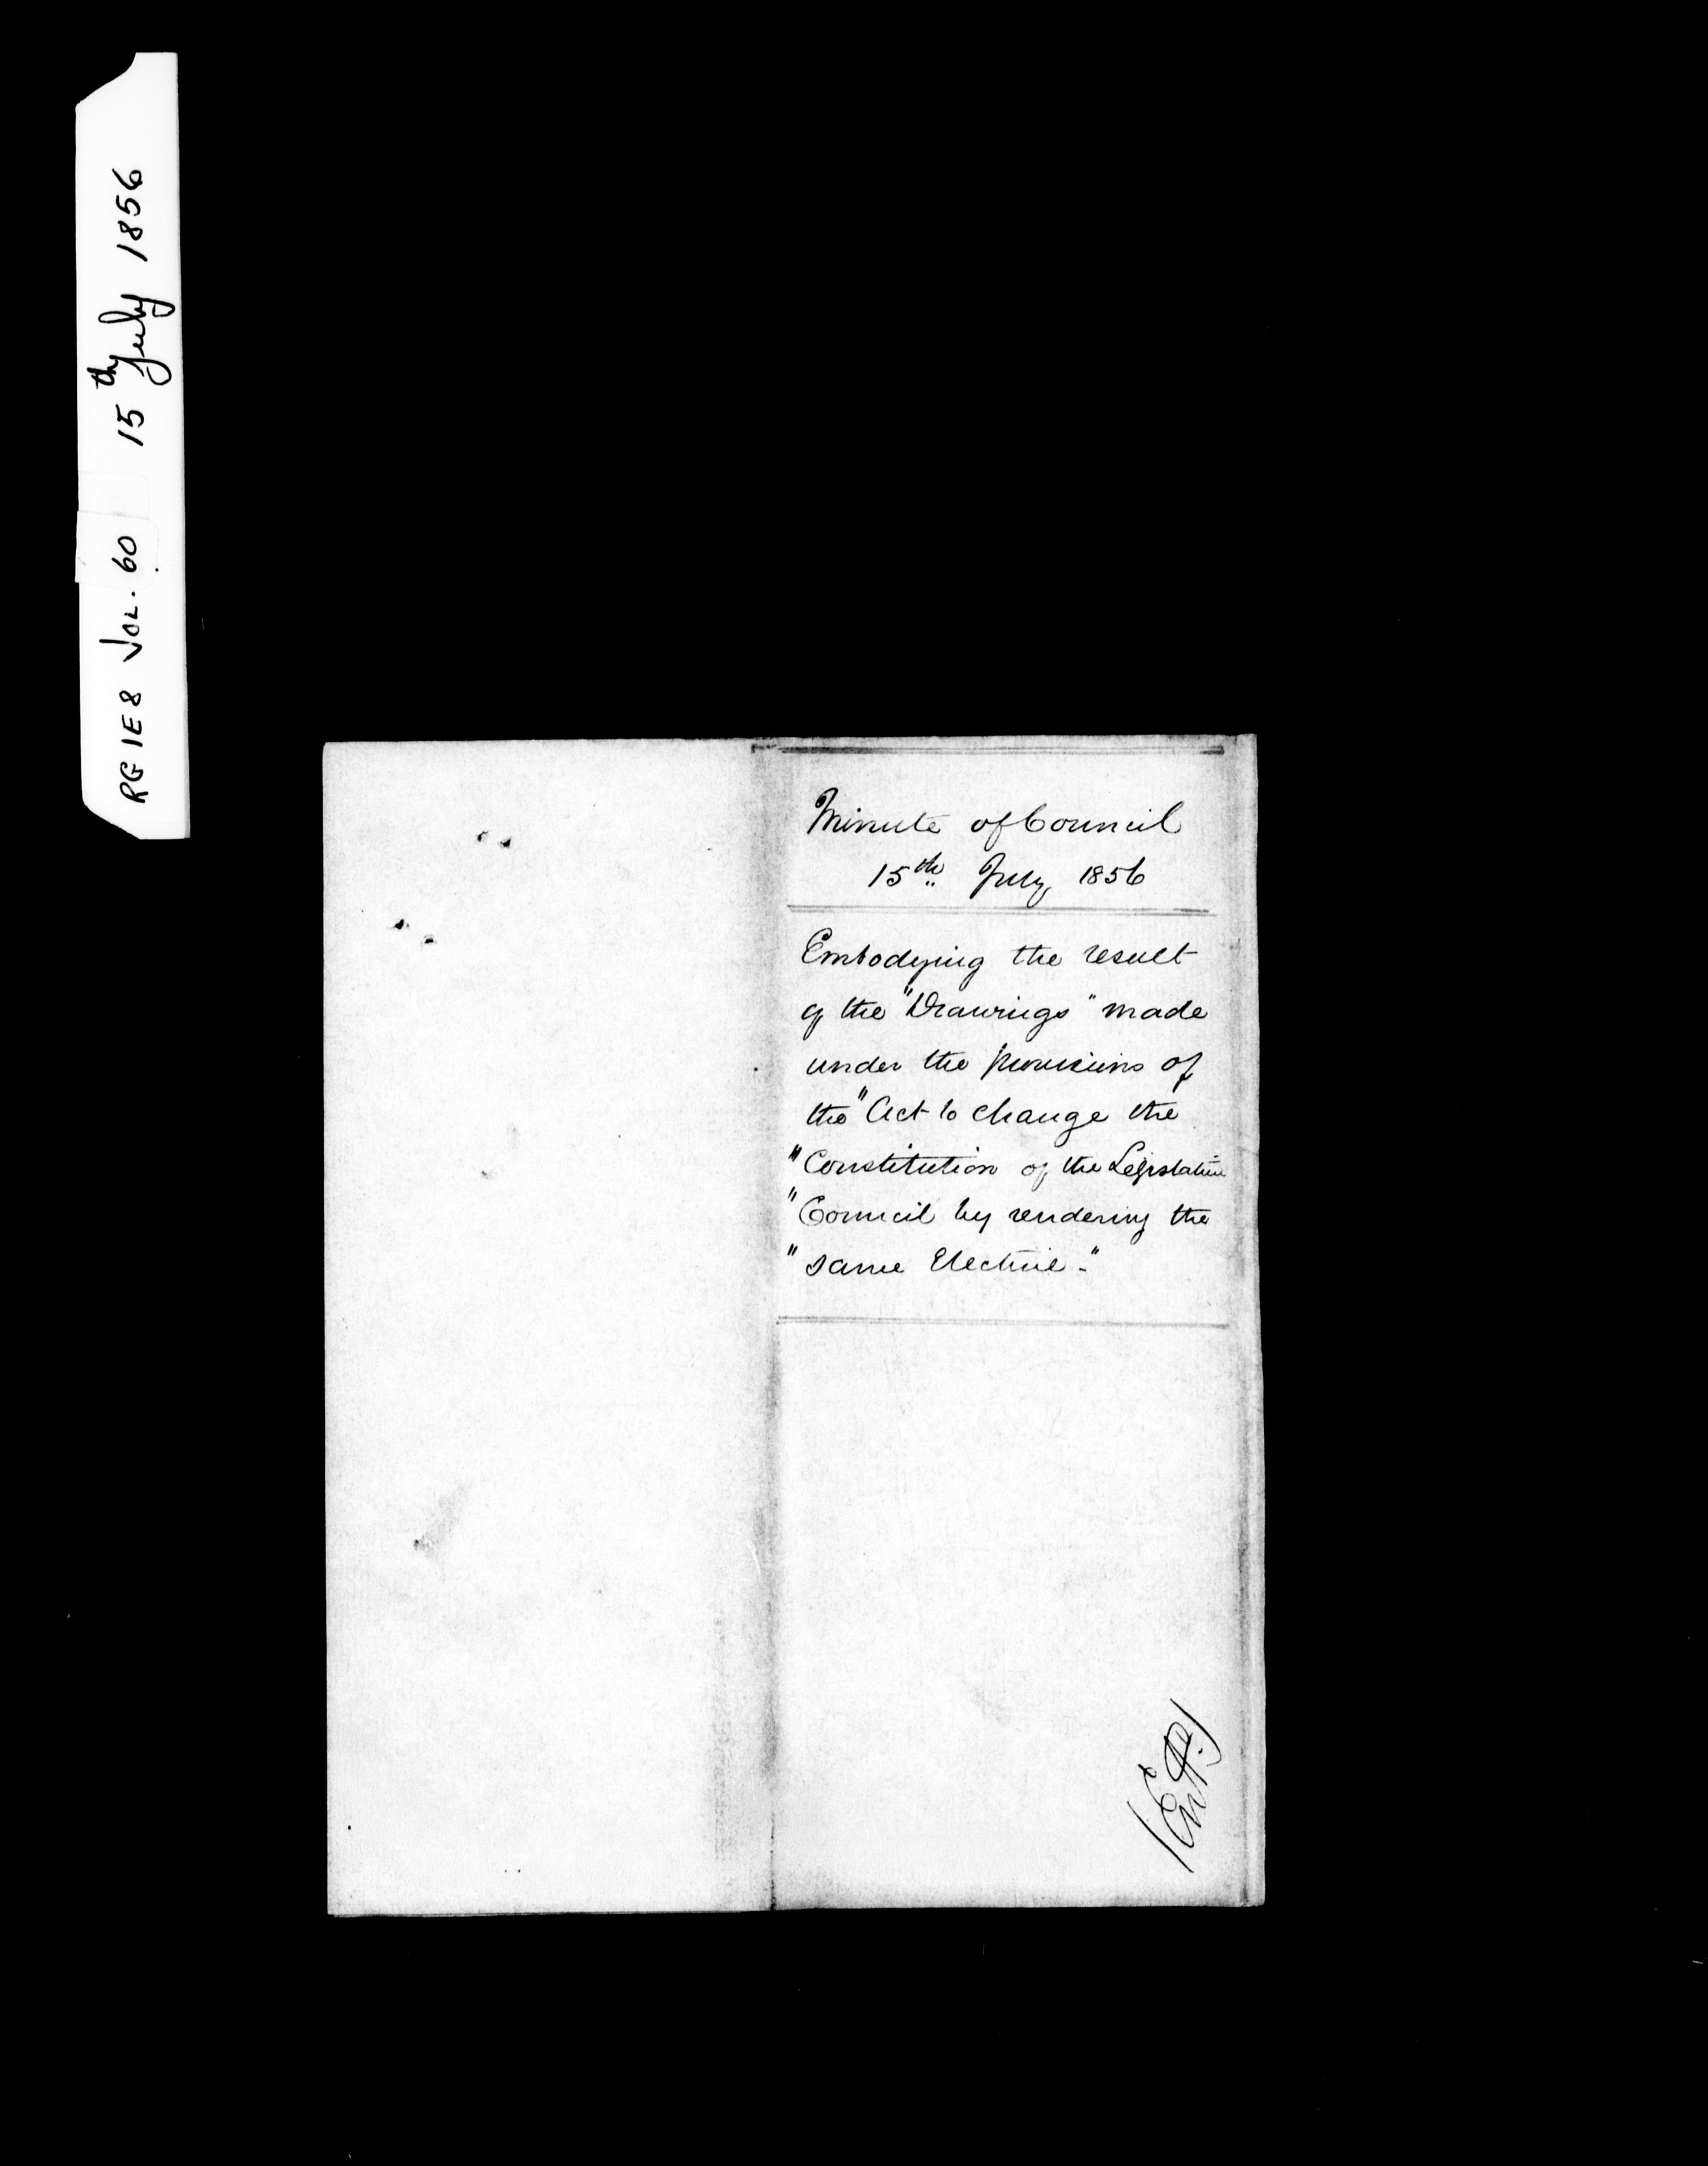 RG 1E8 VOL. 60 15th July 1856
Minute of Council
15th July 1856
Embodying the result
of the "Drawings" made
under the provisions of
the "Act to change the
"Constitution of the Legislative
"Council by rendering the
"same Elective."